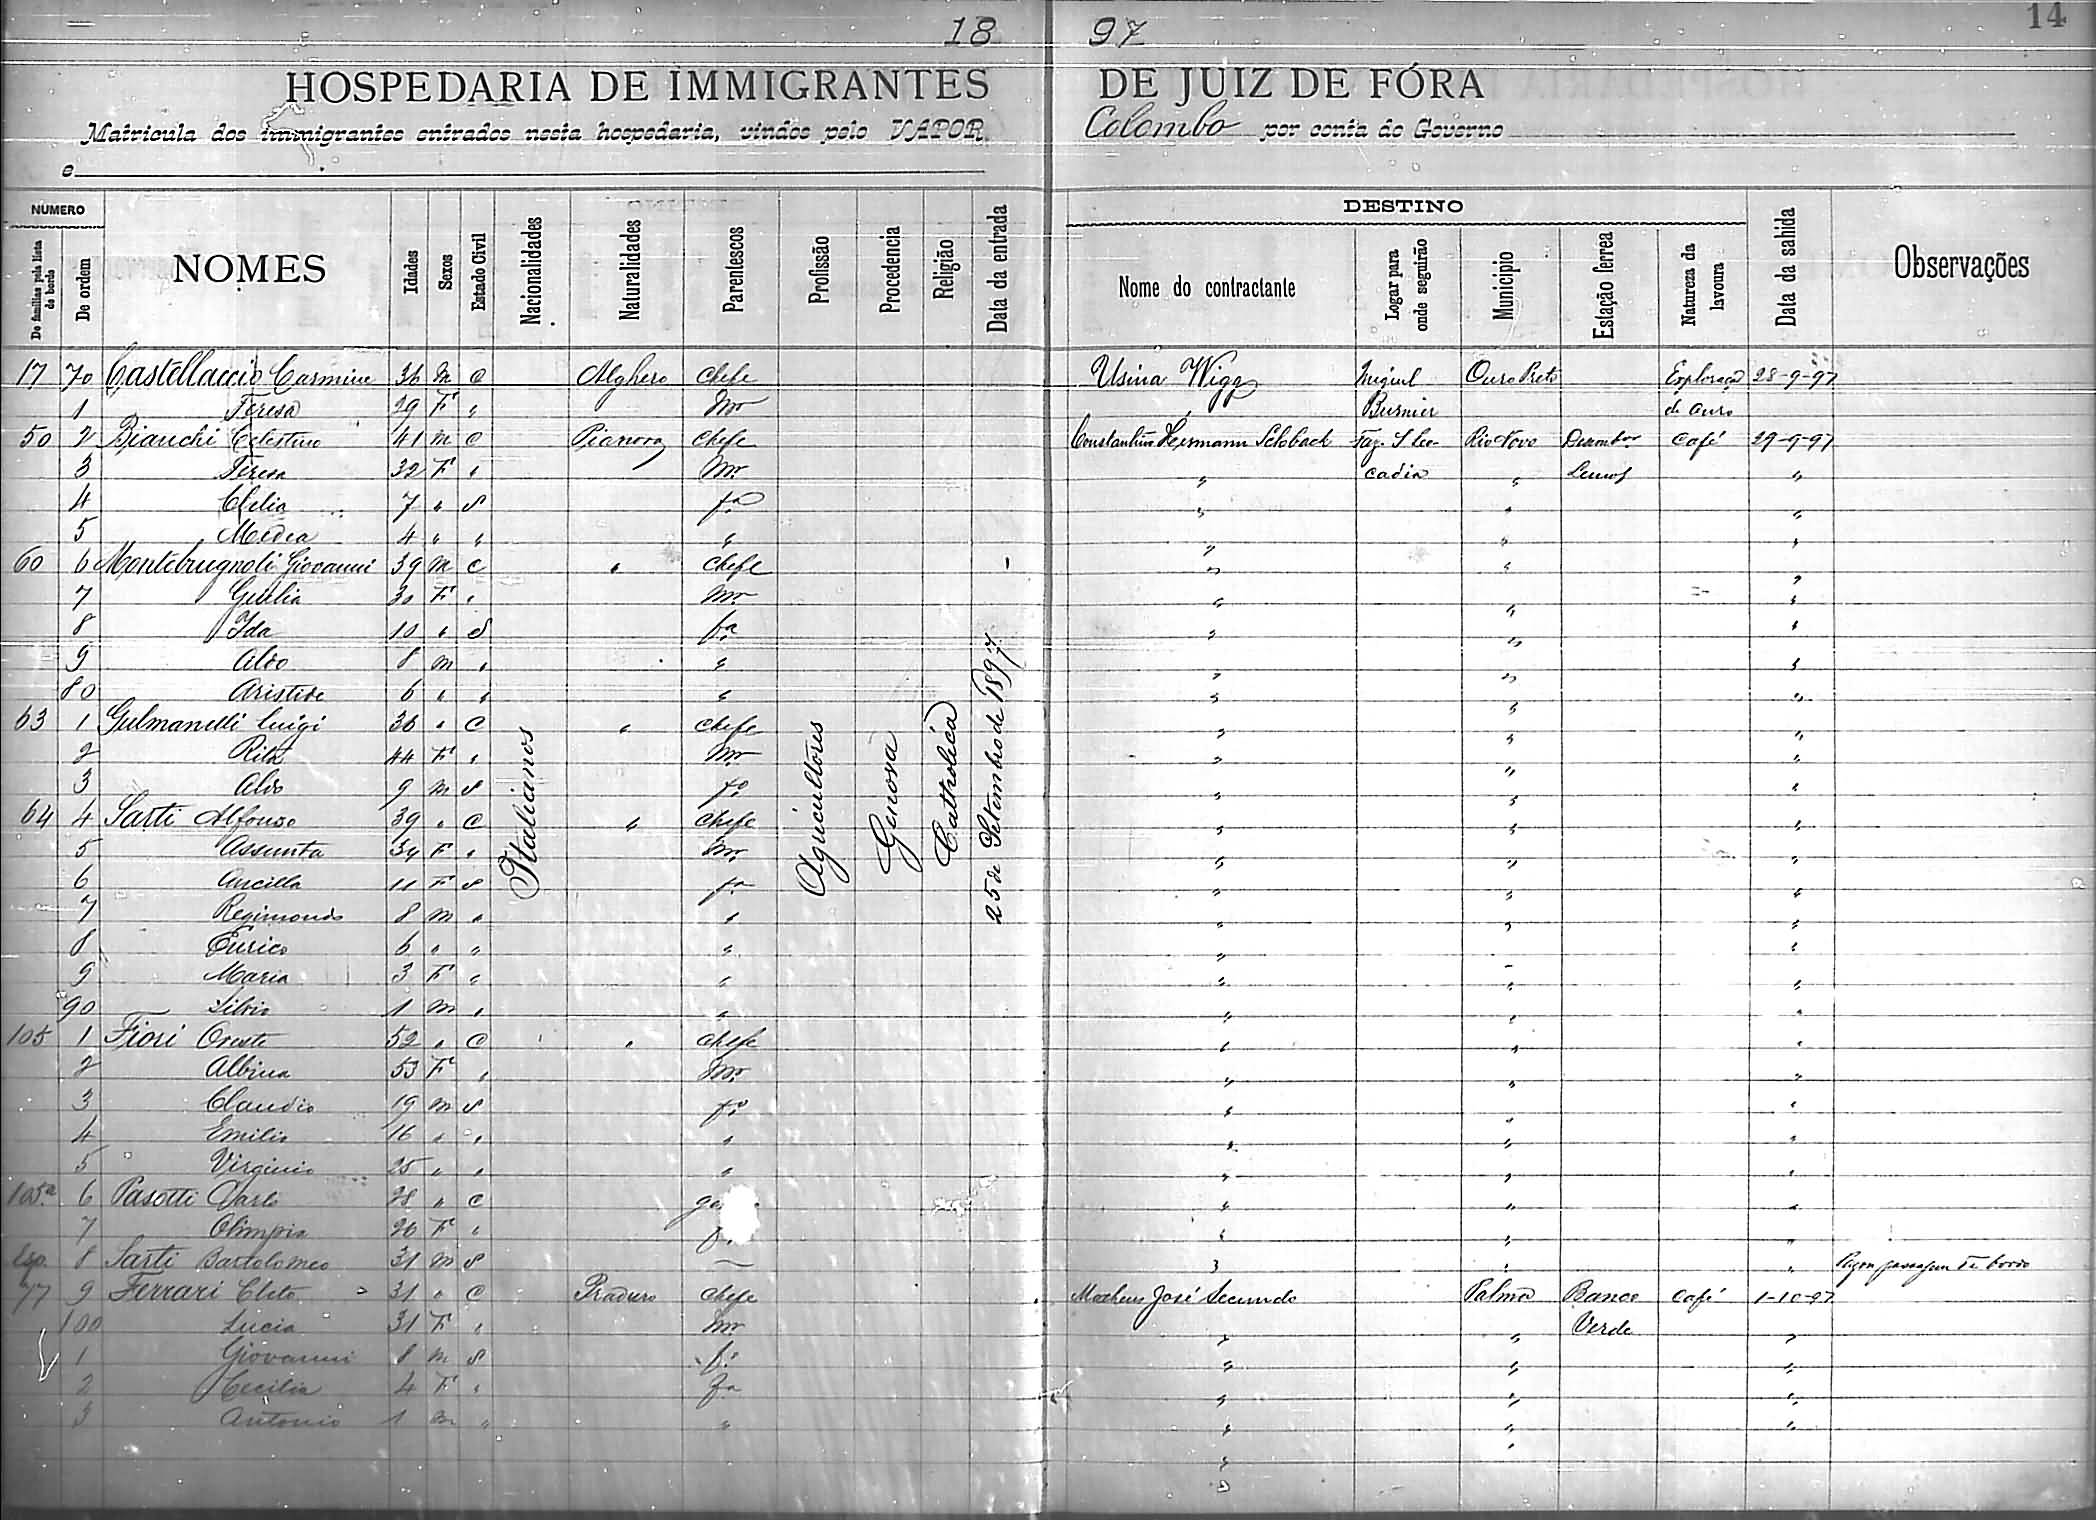 14
18 97
HOSPEDARIA DE IMMIGRANTES DE JUIZ DE FÓRA
Matricula dos immigrantes entrados nesta hospedaria, vindos pelo VAPOR Colombo por conta do Governo
e
NUMERO DESTINO
De familias pela lista de bordo De ordem NOMES Idades Sexos Estado Civil Nacionalidades Naturalidades Parentescos Profissão Procedencia Religião Data da entrada Nome do contractante Logar para onde seguirão Municipio Estação ferrea Natureza da lavoura Data da sahida Observações
Italianos Agricultores Genova Catholica 25 de Setembro de 1897
17 70 Castellaccio Carmine 36 M C Alghero Chefe Usina Wigg Miguel Ouro Preto 28-9-97
1 Teresa 29 F " Mer Burnier de ouro
50 2 Bianchi Celestino 41 M C Pianora Chefe Constantino Hermann Schoback Faz. S Leo- Rio Novo Café 29-9-97
3 Teresa 32 F " Mer " cadia " Lemos "
4 Clelia 7 " S fa " " "
5 Medea 4 " " " " " "
60 6 Montebugnoli Giovanni 39 M C " Chefe " " "
7 Giulia 30 F " Mer " " "
8 Ida 10 " S fa " " "
9 Aldo 8 M " " " " "
80 Aristide 6 " " " " " "
63 1 Gulmanelli Luigi 36 " C " Chefe " " "
2 Rita 44 F " Mer " " "
3 Aldo 9 M S fo " " "
64 4 Sarti Alfonso 39 " C " Chefe " " "
5 Assunta 34 F " Mer " " "
6 Ancilla 11 F S fa " " "
7 Regimondo 8 M " " " " "
8 Enrico 6 " " " " " "
9 Maria 3 F " " " " "
90 Silvio 1 M " " " " "
105 1 Fiori Oreste 52 " C " Chefe " " "
2 Albina 53 F " Mer " " "
3 Claudio 19 M S fo " " "
4 Emilio 16 " " " " " "
5 Virginio 25 " " " " " "
105a 6 Pasotti Carlo 28 " C " " "
7 Olimpia 26 F " " " "
Esp. 8 Sarti Bartolomeo 31 M S — " " " Pagou passagem de bordo
77 9 Ferrari Cleto 31 " C Praduro Chefe Matheus José Secundo Palma Banco Café 1-10-97
100 Lucia 31 F " Mer " " Verde "
1 Giovanni 8 M S fo " " "
2 Cecilia 4 F " fa " " "
3 Antonio 1 M " " " " "